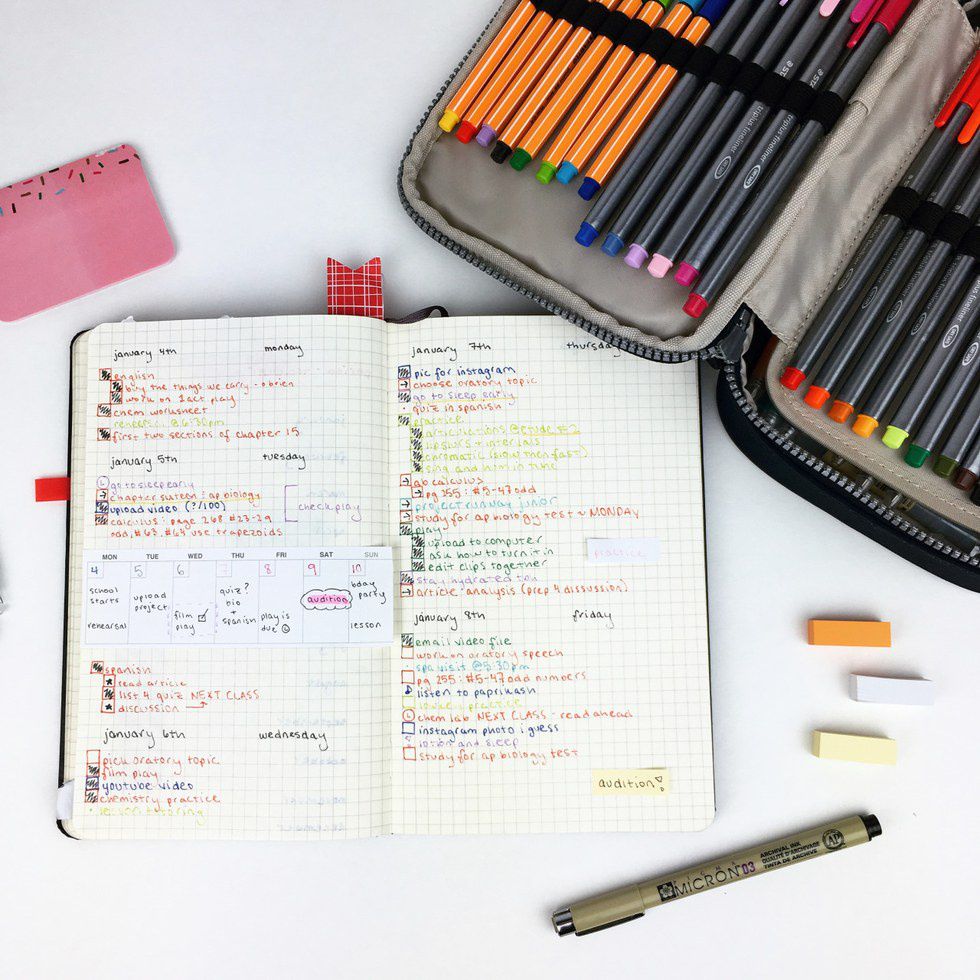 january 4th monday
english
buy the things we carry - o'brien
work on 1 act play
chem worksheet
rehearsal @ 6:30pm
first two sections of chapter 15
january 5th tuesday
go to sleep early
chapter sixteen : ap biology
upload video (?/100)
calculus : page 268 #23-29
odd, #63, #64 use trapezoids
check play
MON TUE WED THU FRI SAT SUN
4 5 6 7 8 9 10
school starts
rehearsal
upload project
film play
quiz? bio + spanish
play is due
audition
bday party
lesson
spanish
read article
list 4 quiz NEXT CLASS
discussion
january 6th wednesday
pick oratory topic
film play
youtube video
chemistry practice
tutoring
january 7th thursday
pic for instagram
choose oratory topic
go to sleep early
quiz in spanish
practice
articulations @ etude #2
lip slurs + intervals
chromatic (slow then fast)
sing and hum in tune
ab calculus
pg 255 : #5-47 odd
project runway junior
study for ap biology test ~ MONDAY
play
upload to computer
ask how to turn it in
edit clips together
practice
stay hydrated
article analysis (prep 4 discussion)
january 8th friday
email video file
work on oratory speech
spa visit @ 5:30pm
pg 255: #5-47 odd numbers
listen to paprikash
practice
chem lab NEXT CLASS - read ahead
instagram photo i guess
lotion and sleep
study for ap biology test
audition!
triplus fineliner
triplus fineliner
triplus fineliner
MICRON 03
ARCHIVAL INK
QUALITÉ D'ARCHIVAGE
TINTA DE ARCHIVOS
AP